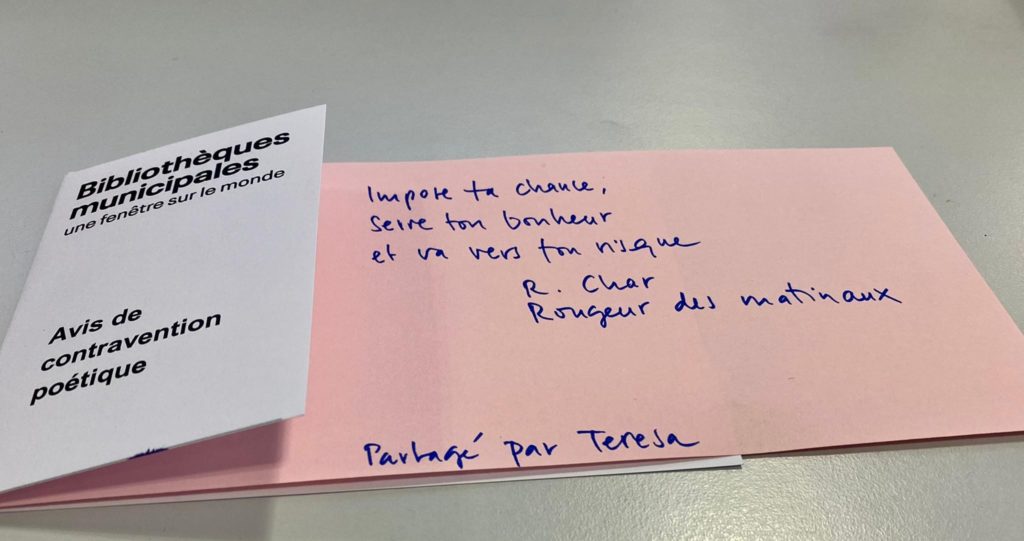 Bibliothèques
municipales
une fenêtre sur le monde
Avis de
contravention
poétique
Impose ta chance,
serre ton bonheur
et va vers ton risque
R. Char
Rougeur des matinaux
Partagé par Teresa